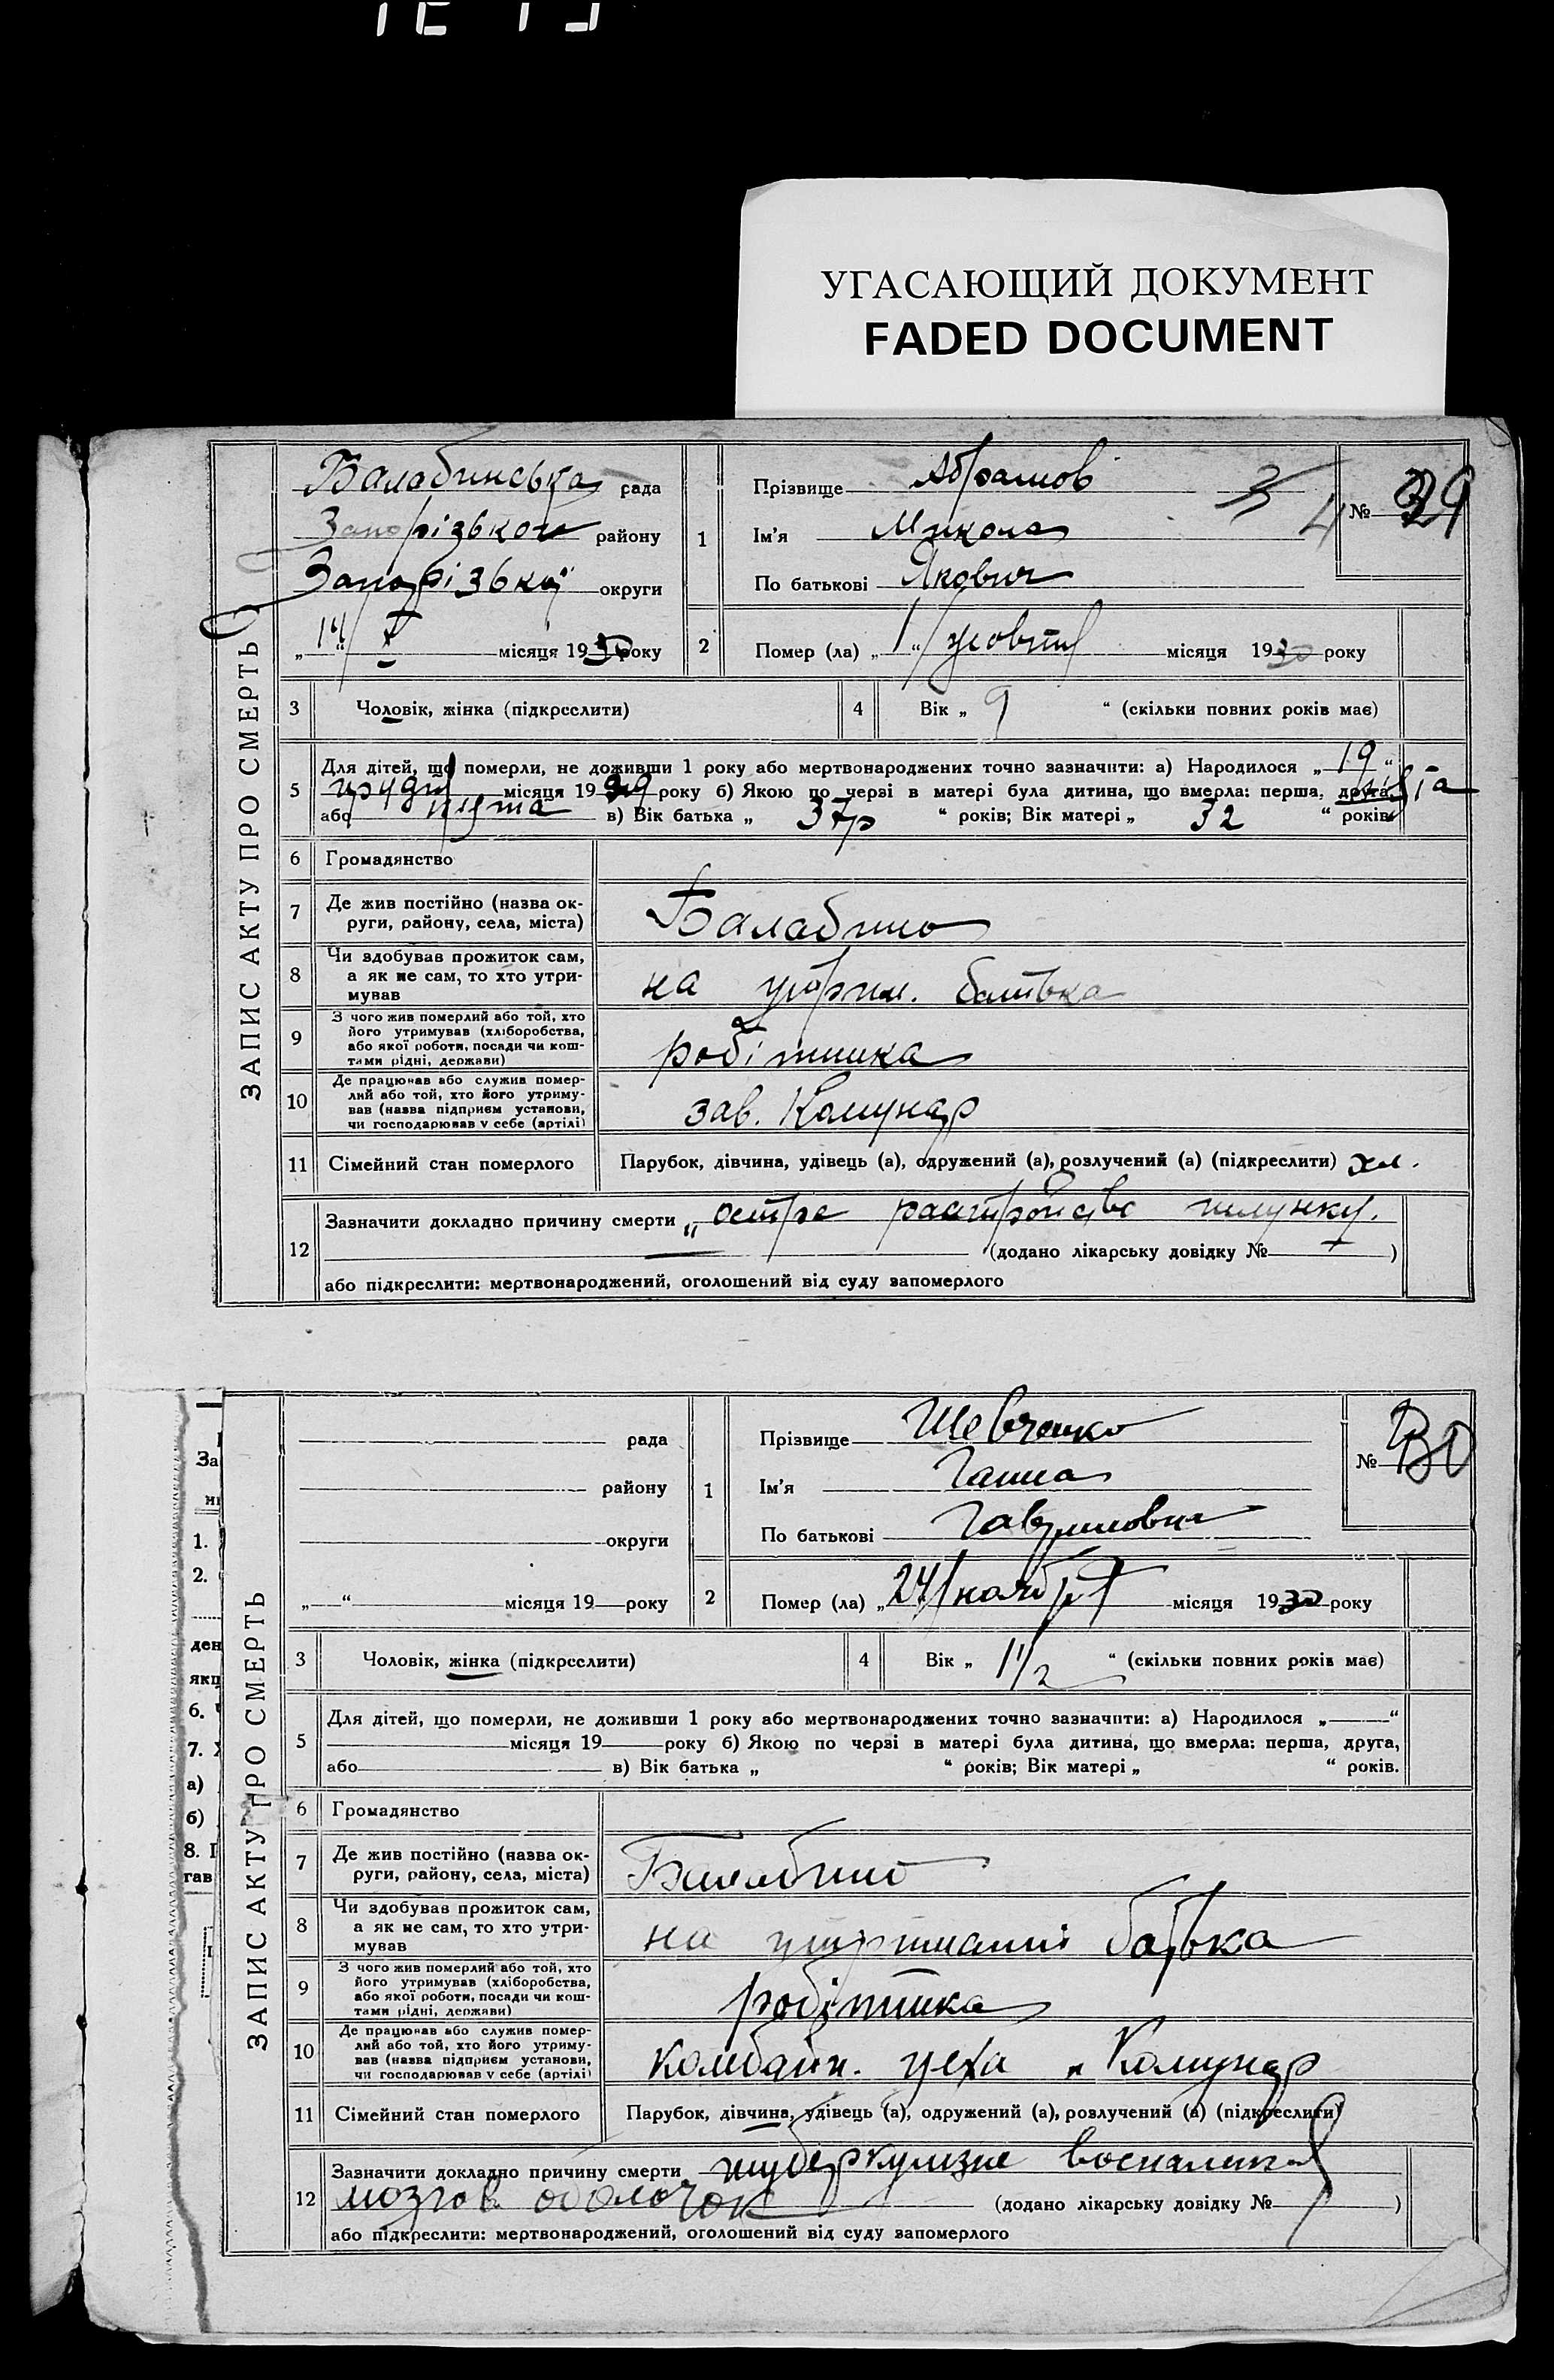 УГАСАЮЩИЙ ДОКУМЕНТ
FADED DOCUMENT
ЗАПИС АКТУ ПРО СМЕРТЬ
Балабинська рада
Запорізького району
Запорізької округи
„ 14 “ X місяця 1930 року
1
Прізвище Абрамов
Ім'я Микола
По батькові Якович
3
4
№ 29
2 Помер (ла) „ 1 “ жовтня місяця 1930 року
3 Чоловік, жінка (підкреслити)
4 Вік „ 9 “ (скільки повних років має)
5 Для дітей, що померли, не доживши 1 року або мертвонароджених точно зазначити: а) Народилося „ 19 “
грудня місяця 1929 року б) Якою по черзі в матері була дитина, що вмерла: перша, друга,
або п'ята в) Вік батька „ 37р “ років; Вік матері „ 32 “ років.
6 Громадянство
7 Де жив постійно (назва округи, району, села, міста) Балабино
8 Чи здобував прожиток сам, а як не сам, то хто утримував на утрим. батька
9 З чого жив померлий або той, хто його утримував (хліборобства, або якої роботи, посади чи коштами рідні, держави) робітника
10 Де працював або служив померлий або той, хто його утримував (назва підприєм установи, чи господарював у себе (артілі) зав. Комунар
11 Сімейний стан померлого Парубок, дівчина, удівець (а), одружений (а), розлучений (а) (підкреслити) хл.
12 Зазначити докладно причину смерти „ остре расстройство шлунку.
(додано лікарську довідку № )
або підкреслити: мертвонароджений, оголошений від суду запомерлого
ЗАПИС АКТУ ПРО СМЕРТЬ
рада
району
округи
„ “ місяця 19 року
1
Прізвище Шевченко
Ім'я Ганна
По батькові Гавриловна
№ 30
2 Помер (ла) „ 24 ноября місяця 1930 року
3 Чоловік, жінка (підкреслити)
4 Вік „ 1 1/2 “ (скільки повних років має)
5 Для дітей, що померли, не доживши 1 року або мертвонароджених точно зазначити: а) Народилося „ “
місяця 19 року б) Якою по черзі в матері була дитина, що вмерла: перша, друга,
або в) Вік батька „ “ років; Вік матері „ “ років.
6 Громадянство
7 Де жив постійно (назва округи, району, села, міста) Балабино
8 Чи здобував прожиток сам, а як не сам, то хто утримував на утриманні батька
9 З чого жив померлий або той, хто його утримував (хліборобства, або якої роботи, посади чи коштами рідні, держави) робітника
10 Де працював або служив померлий або той, хто його утримував (назва підприєм установи, чи господарював у себе (артілі) комбайн. цеха „ Комунар
11 Сімейний стан померлого Парубок, дівчина, удівець (а), одружений (а), розлучений (а) (підкреслити)
12 Зазначити докладно причину смерти туберкулізне воспаления
мозгов. оболочок (додано лікарську довідку № )
або підкреслити: мертвонароджений, оголошений від суду запомерлого